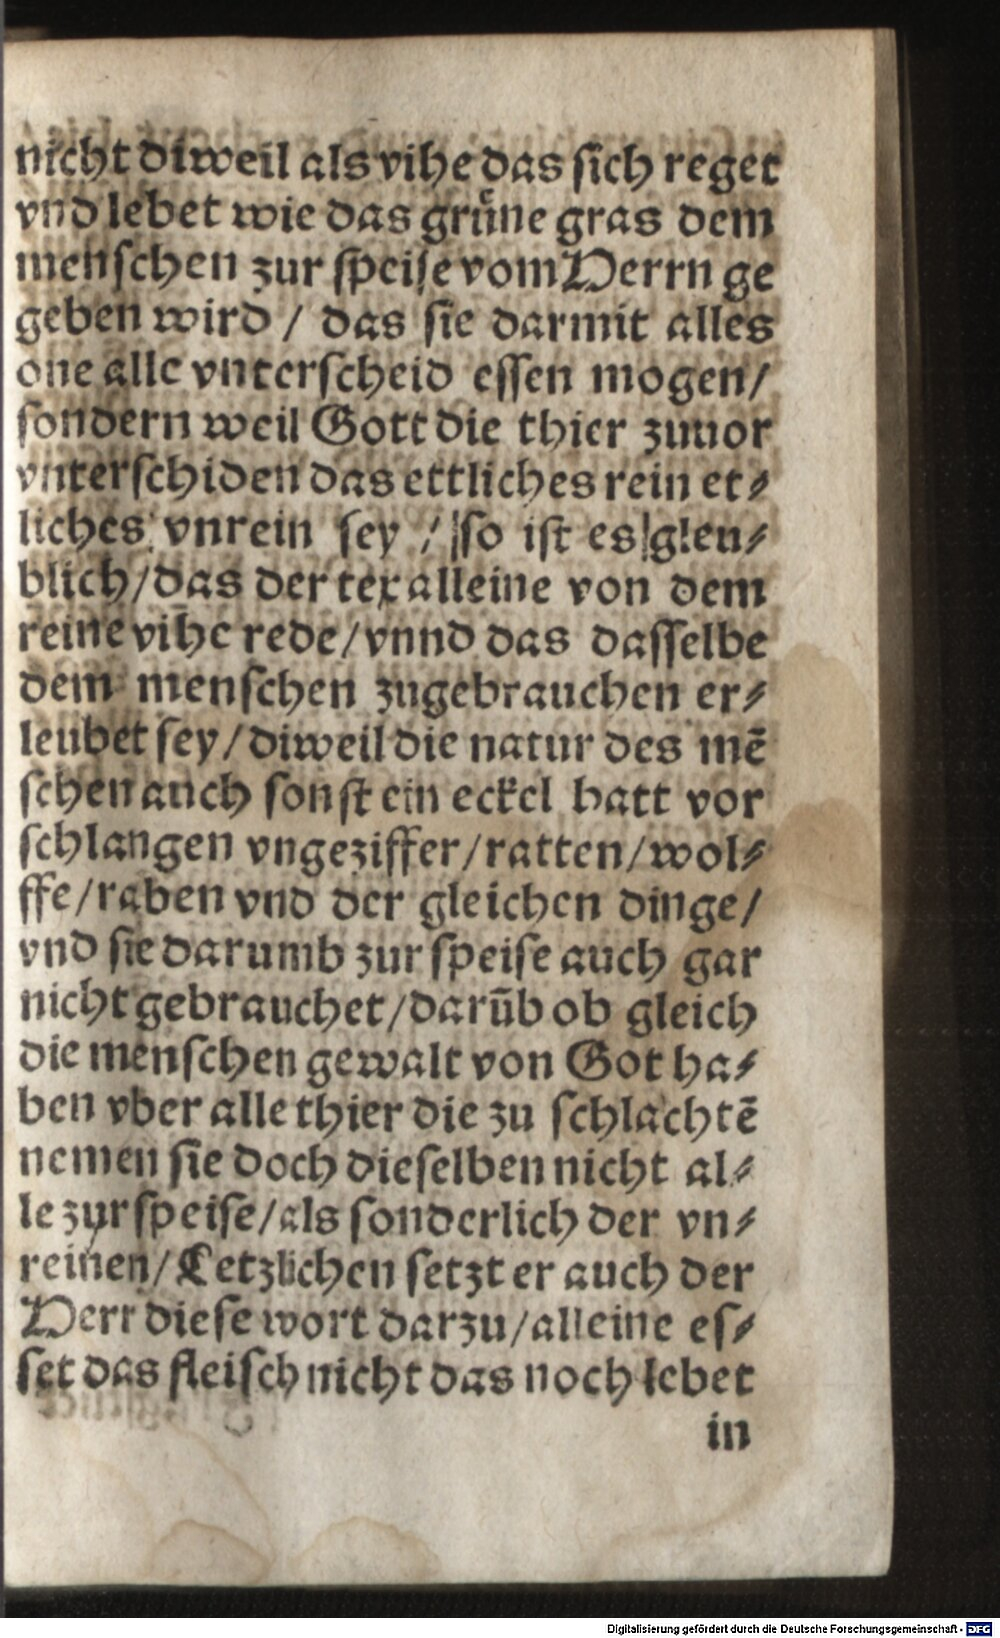 nicht diweil als vihe das sich reget
vnd lebet wie das grüne gras dem
menschen zur speise vom Herrn ge
geben wird / das sie darmit alles
one alle vnterscheid essen mogen/
sondern weil Gott die thier zuuor
vnterschiden das ettliches rein et⸗
liches vnrein sey / so ist es glen⸗
blich/das der tex alleine von dem
reine vihe rede/vnnd das dasselbe
dem menschen zugebrauchen er⸗
leubet sey/diweil die natur des mē
schen auch sonst ein eckel hatt vor
schlangen vngeziffer/ratten/wol⸗
ffe/raben vnd der gleichen dinge/
vnd sie darumb zur speise auch gar
nicht gebrauchet/darūb ob gleich
die menschen gewalt von Got ha⸗
ben vber alle thier die zu schlachtē
nemen sie doch dieselben nicht al⸗
le zur speise/als sonderlich der vn⸗
reinen/Letzlichen setzt er auch der
Herr diese wort darzu/alleine es⸗
set das fleisch nicht das noch lebet
in
Digitalisierung gefördert durch die Deutsche Forschungsgemeinschaft - DFG